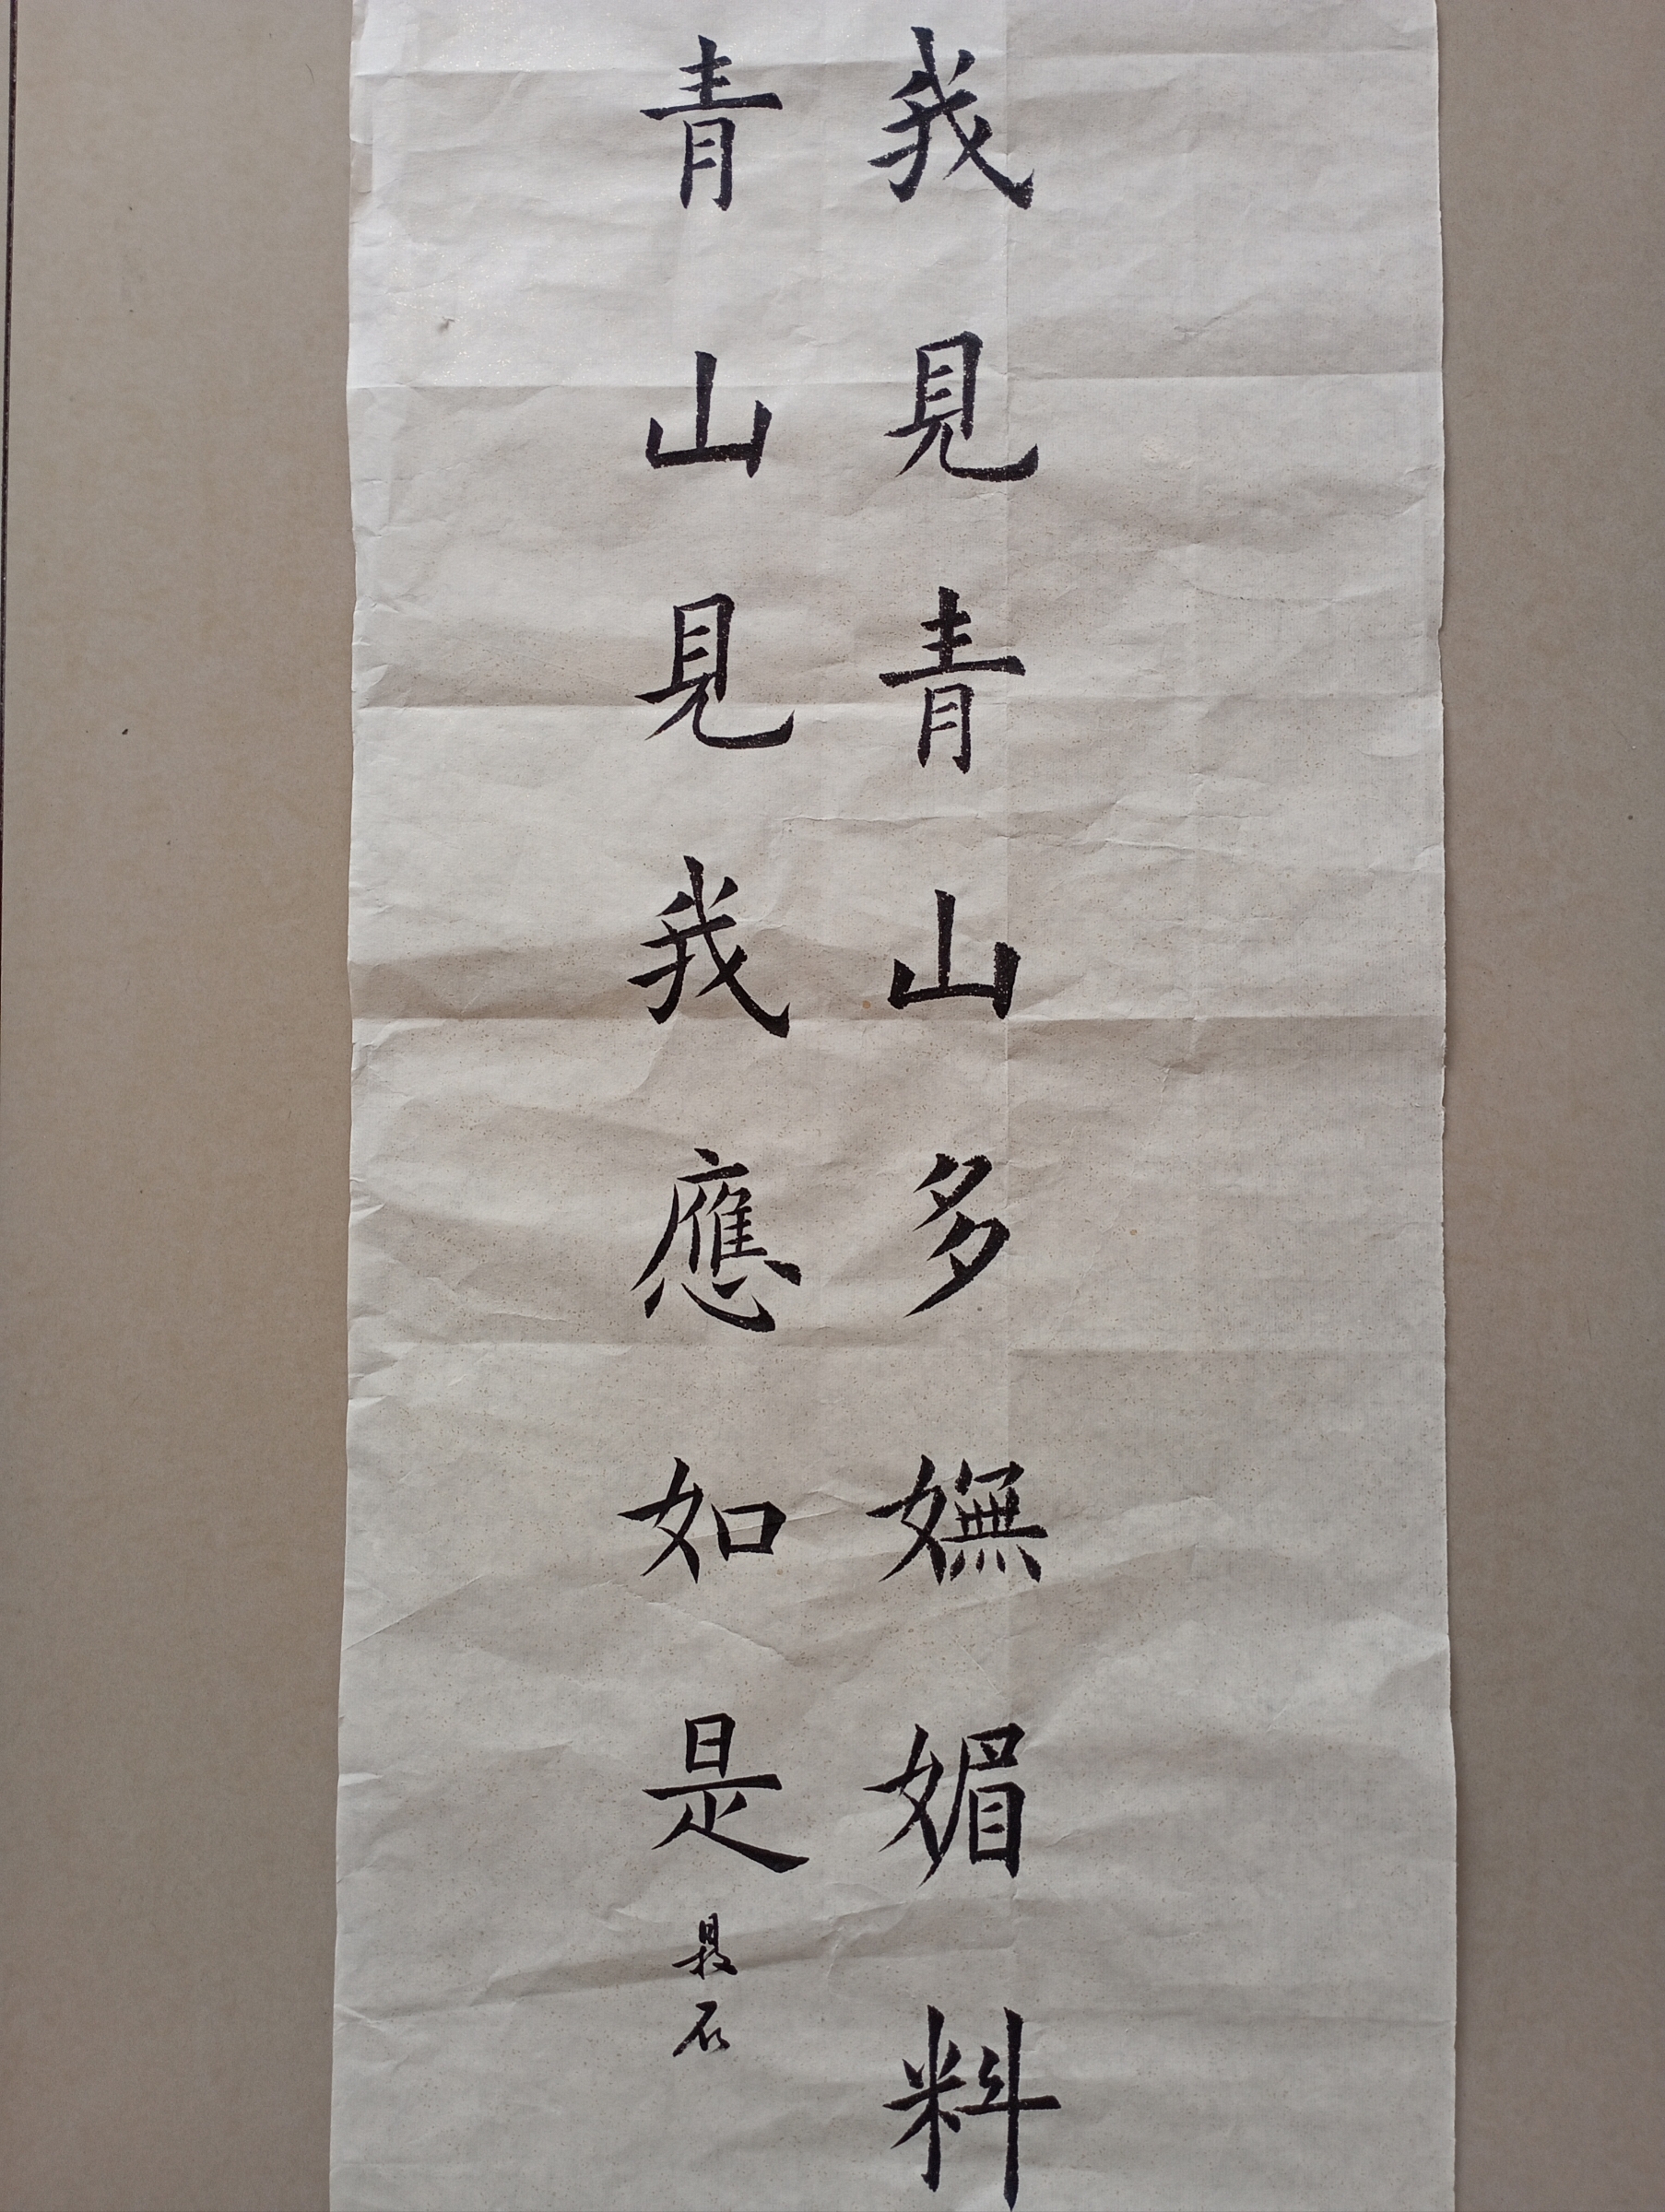 我見青山多嫵媚料
青山見我應如是
石